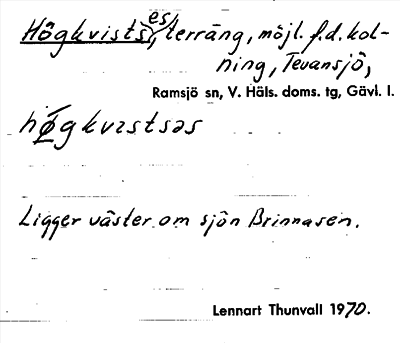 Högkvistses, terräng, möjl. f.d. kol-
ning, Tevansjö,
Ramsjö sn, V. Häls. doms. tg, Gävl. l.
hø̄gkvıstsəs
Ligger väster om sjön Brinnasen.
Lennart Thunvall 1970.